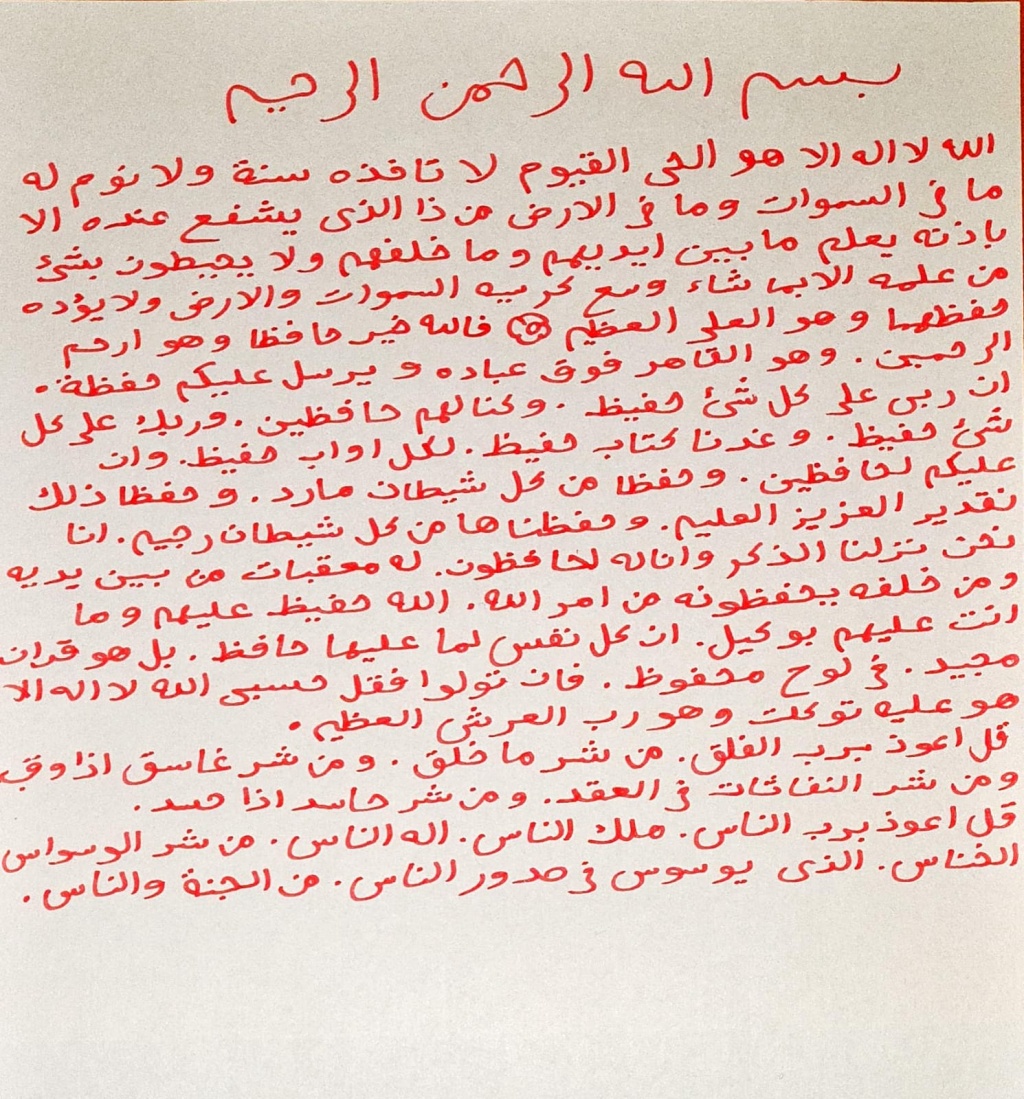 بسم الله الرحمن الرحيم
الله لا اله الا هو الحى القيوم لا تافذه سنة ولا نوم له
ما فى السموات وما فى الارض من ذا الذى يشفع عنده الا
باذنه يعلم ما بين ايديهم وما خلفهم ولا يحيطون بشئ
من علمه الا بما شاء وسع كرسيه السموات والارض ولا يؤده
حفظهما وهو العلى العظيم فالله خير حافظا وهو ارحم
الرحمين . وهو القاهر فوق عباده ويرسل عليكم حفظة .
ان ربى على كل شئ حفيظ . وكنا لهم حافظين . وربك على كل
شئ حفيظ . وعندنا كتاب حفيظ . لكل اواب حفيظ . وان
عليكم لحافظين . وحفظا من كل شيطان مارد . وحفظا ذلك
تقدير العزيز العليم . وحفظناها من كل شيطان رجيم . انا
نحن نزلنا الذكر وانا له لحافظون . له معقبات من بين يديه
ومن خلفه يحفظونه من امر الله . الله حفيظ عليهم وما
انت عليهم بوكيل . ان كل نفس لما عليها حافظ . بل هو قران
مجيد . فى لوح محفوظ . فان تولوا فقل حسبى الله لا اله الا
هو عليه توكلت وهو رب العرش العظيم .
قل اعوذ برب الفلق . من شر ما خلق . ومن شر غاسق اذا وقب
ومن شر النفاثات فى العقد . ومن شر حاسد اذا حسد .
قل اعوذ برب الناس . ملك الناس . اله الناس . من شر الوسواس
الخناس . الذى يوسوس فى صدور الناس . من الجنة والناس .